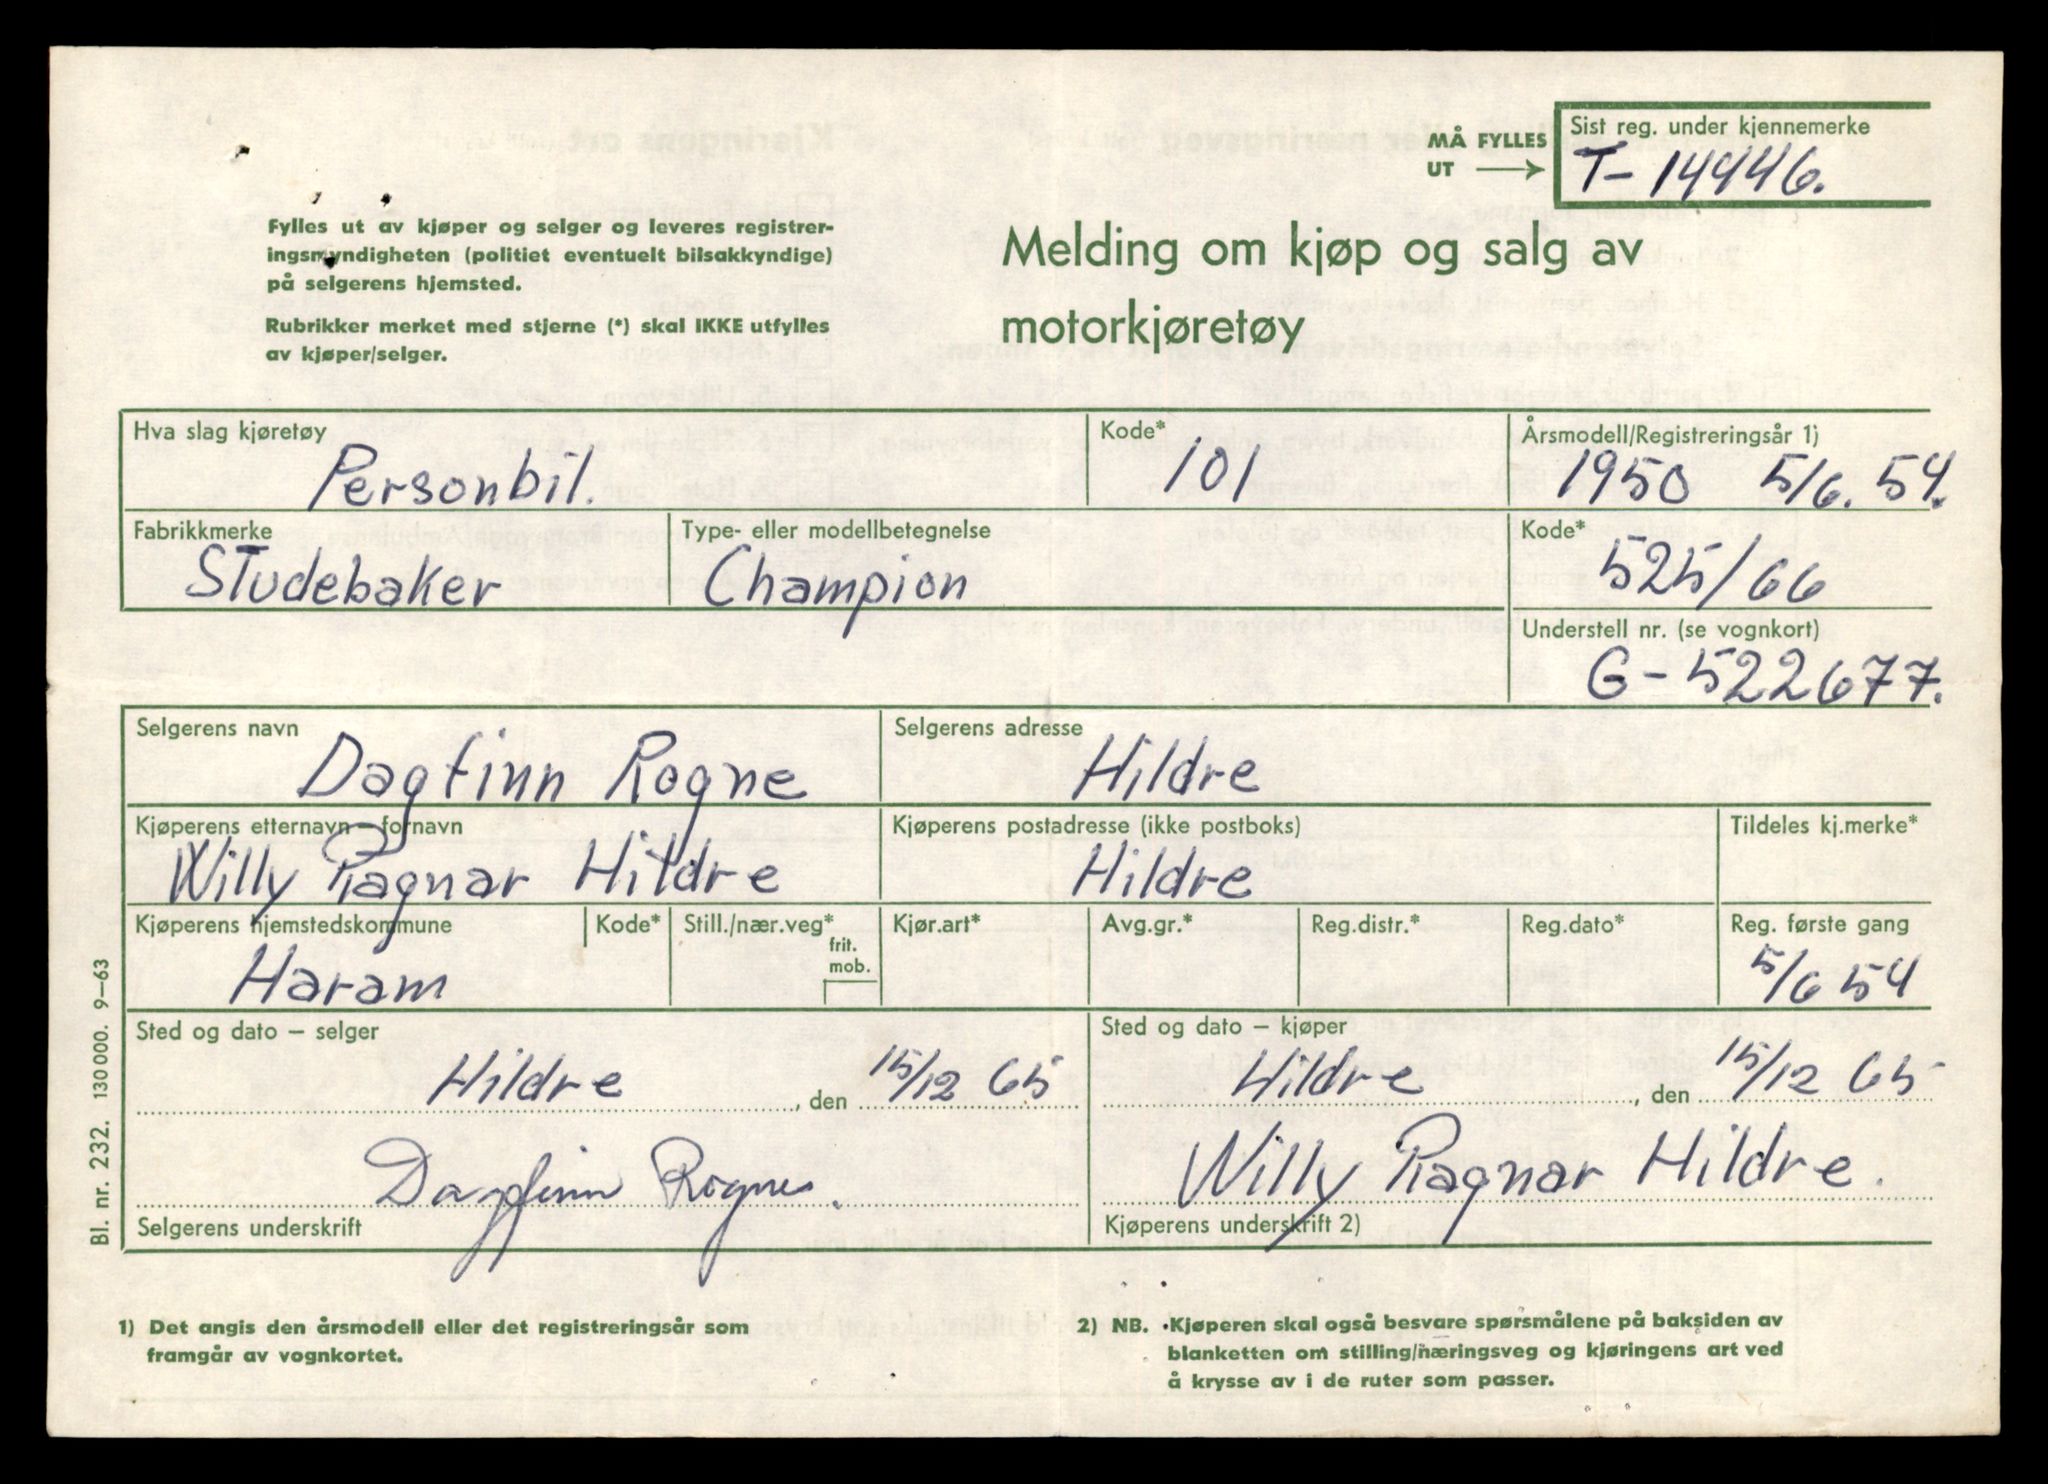 MÅ FYLLES UT
Sist reg. under kjennemerke
T-14446.
Fylles ut av kjøper og selger og leveres registrer-
ingsmyndigheten (politiet eventuelt bilsakkyndige)
på selgerens hjemsted.
Rubrikker merket med stjerne (*) skal IKKE utfylles
av kjøper/selger.
Melding om kjøp og salg av
motorkjøretøy
Hva slag kjøretøy
Personbil.
Kode*
101
Årsmodell/Registreringsår 1)
1950 5/6. 54.
Fabrikkmerke
Studebaker
Type- eller modellbetegnelse
Champion
Kode*
525/66
Understell nr. (se vognkort)
G-522677.
Selgerens navn
Dagfinn Rogne
Selgerens adresse
Hildre
Kjøperens etternavn – fornavn
Willy Ragnar Hildre
Kjøperens postadresse (ikke postboks)
Hildre
Tildeles kj.merke*
Kjøperens hjemstedskommune
Haram
Kode*
Still./nær.veg*
frit.
mob.
Kjør.art*
Avg.gr.*
Reg.distr.*
Reg.dato*
Reg. første gang
5/6 54
Sted og dato – selger
Hildre, den 15/12 65
Sted og dato – kjøper
Hildre, den 15/12 65
Dagfinn Rogne.
Selgerens underskrift
Willy Ragnar Hildre.
Kjøperens underskrift 2)
Bl. nr. 232. 130 000. 9–63
1) Det angis den årsmodell eller det registreringsår som
framgår av vognkortet.
2) NB. Kjøperen skal også besvare spørsmålene på baksiden av
blanketten om stilling/næringsveg og kjøringens art ved
å krysse av i de ruter som passer.